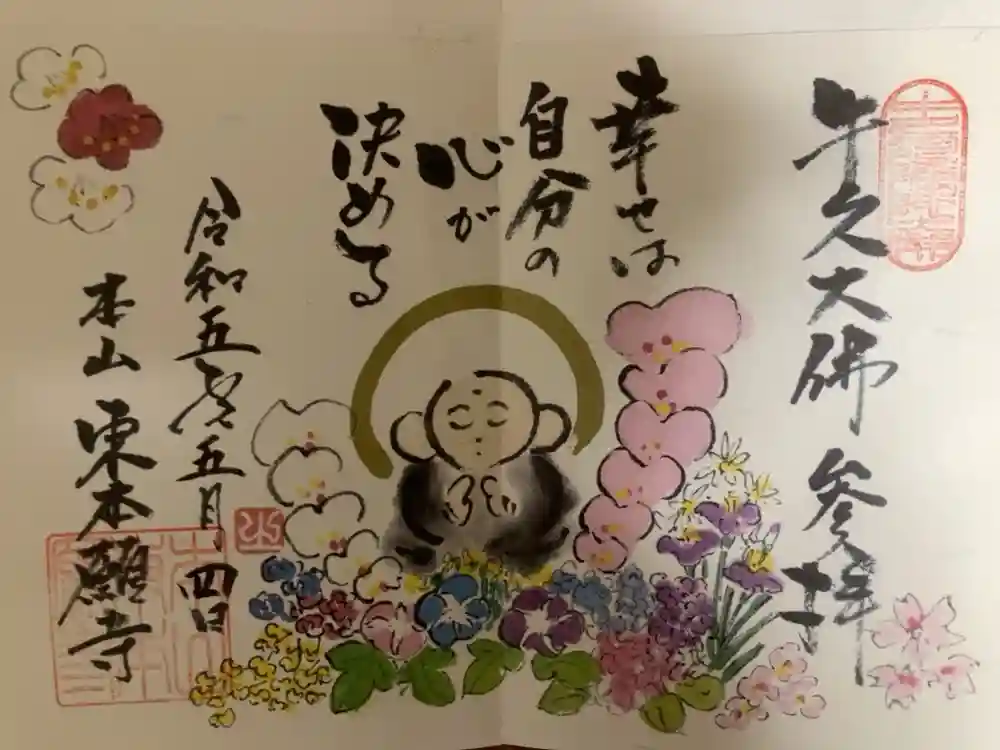 牛久大佛 参拝
幸せは
自分の
心が
決める
令和五年五月四日
本山 東本願寺